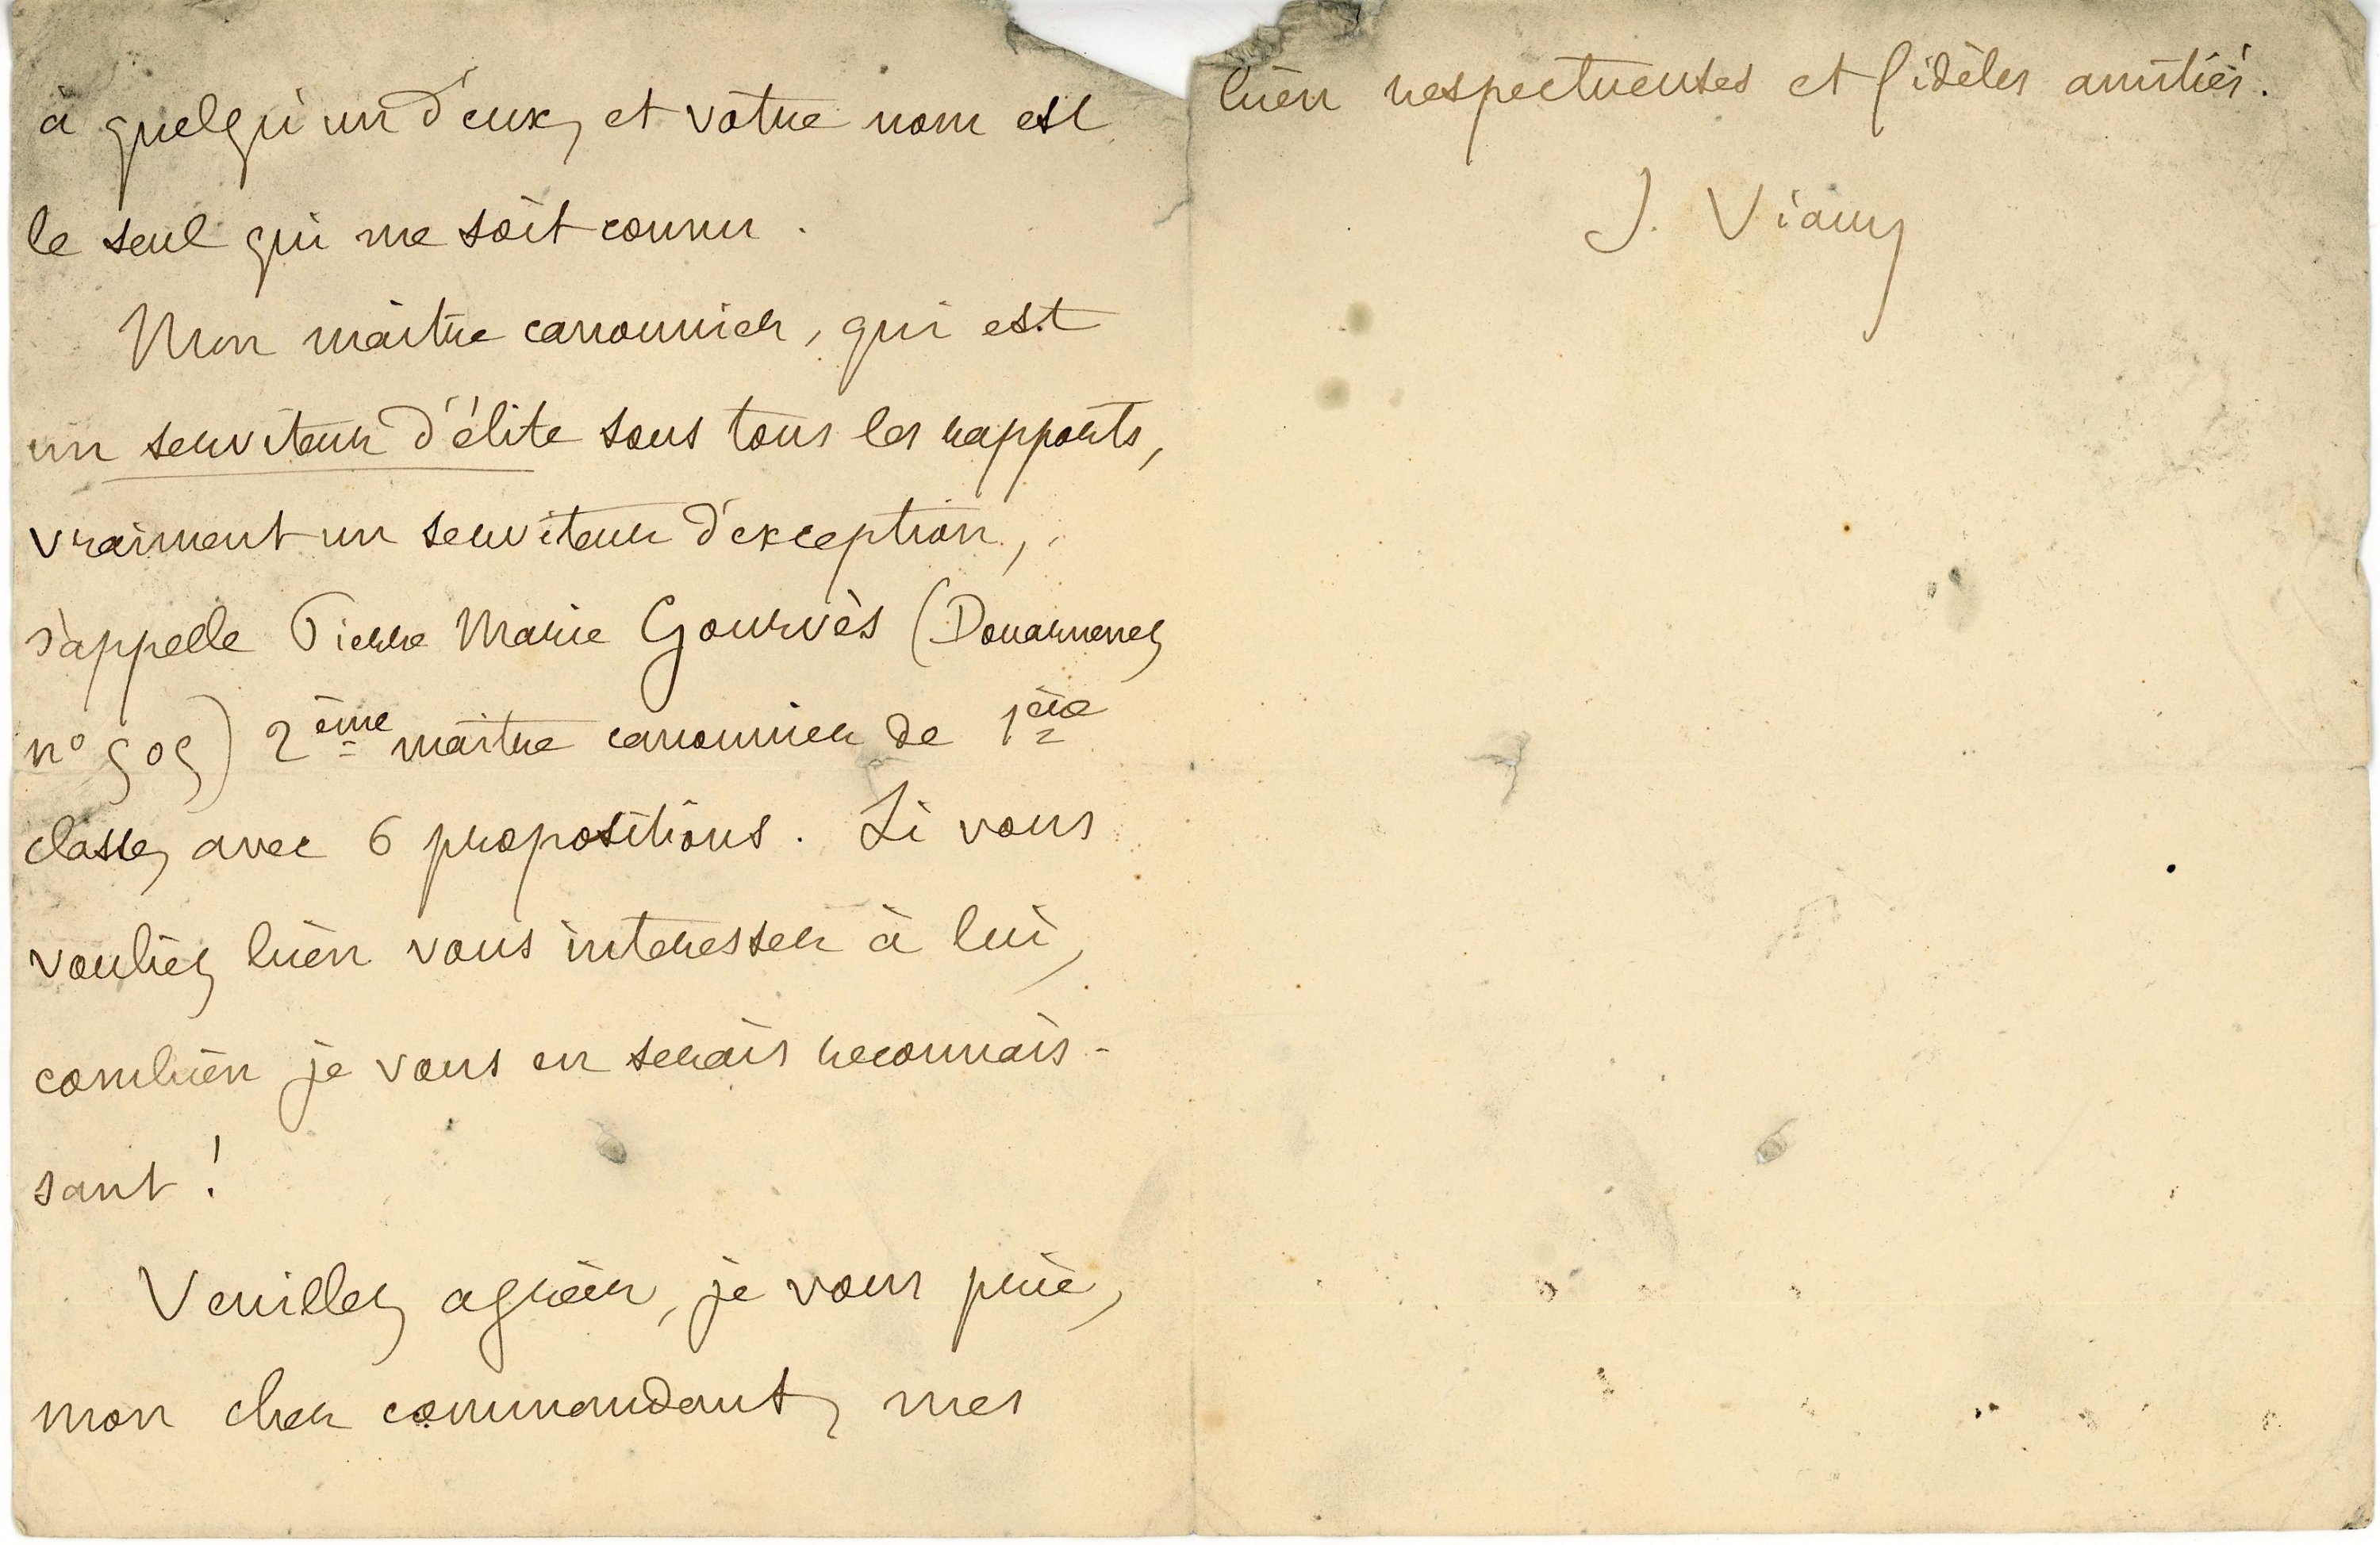 à quelqu'un d'eux, et votre nom est
le seul qui me soit connu.
Mon maître canonnier, qui est
un serviteur d'élite sous tous les rapports,
vraiment un serviteur d'exception,
s'appelle Pierre Marie Gourvès (Douarnenez
n° 505) 2ème maître canonnier de 1ère
classe, avec 6 propositions. Si vous
vouliez bien vous interesser à lui,
combien je vous en serais reconnais-
sant !
Veuillez agréer, je vous prie,
mon cher commandant, mes
bien respectueuses et fidèles amitiés.
J. Viaud